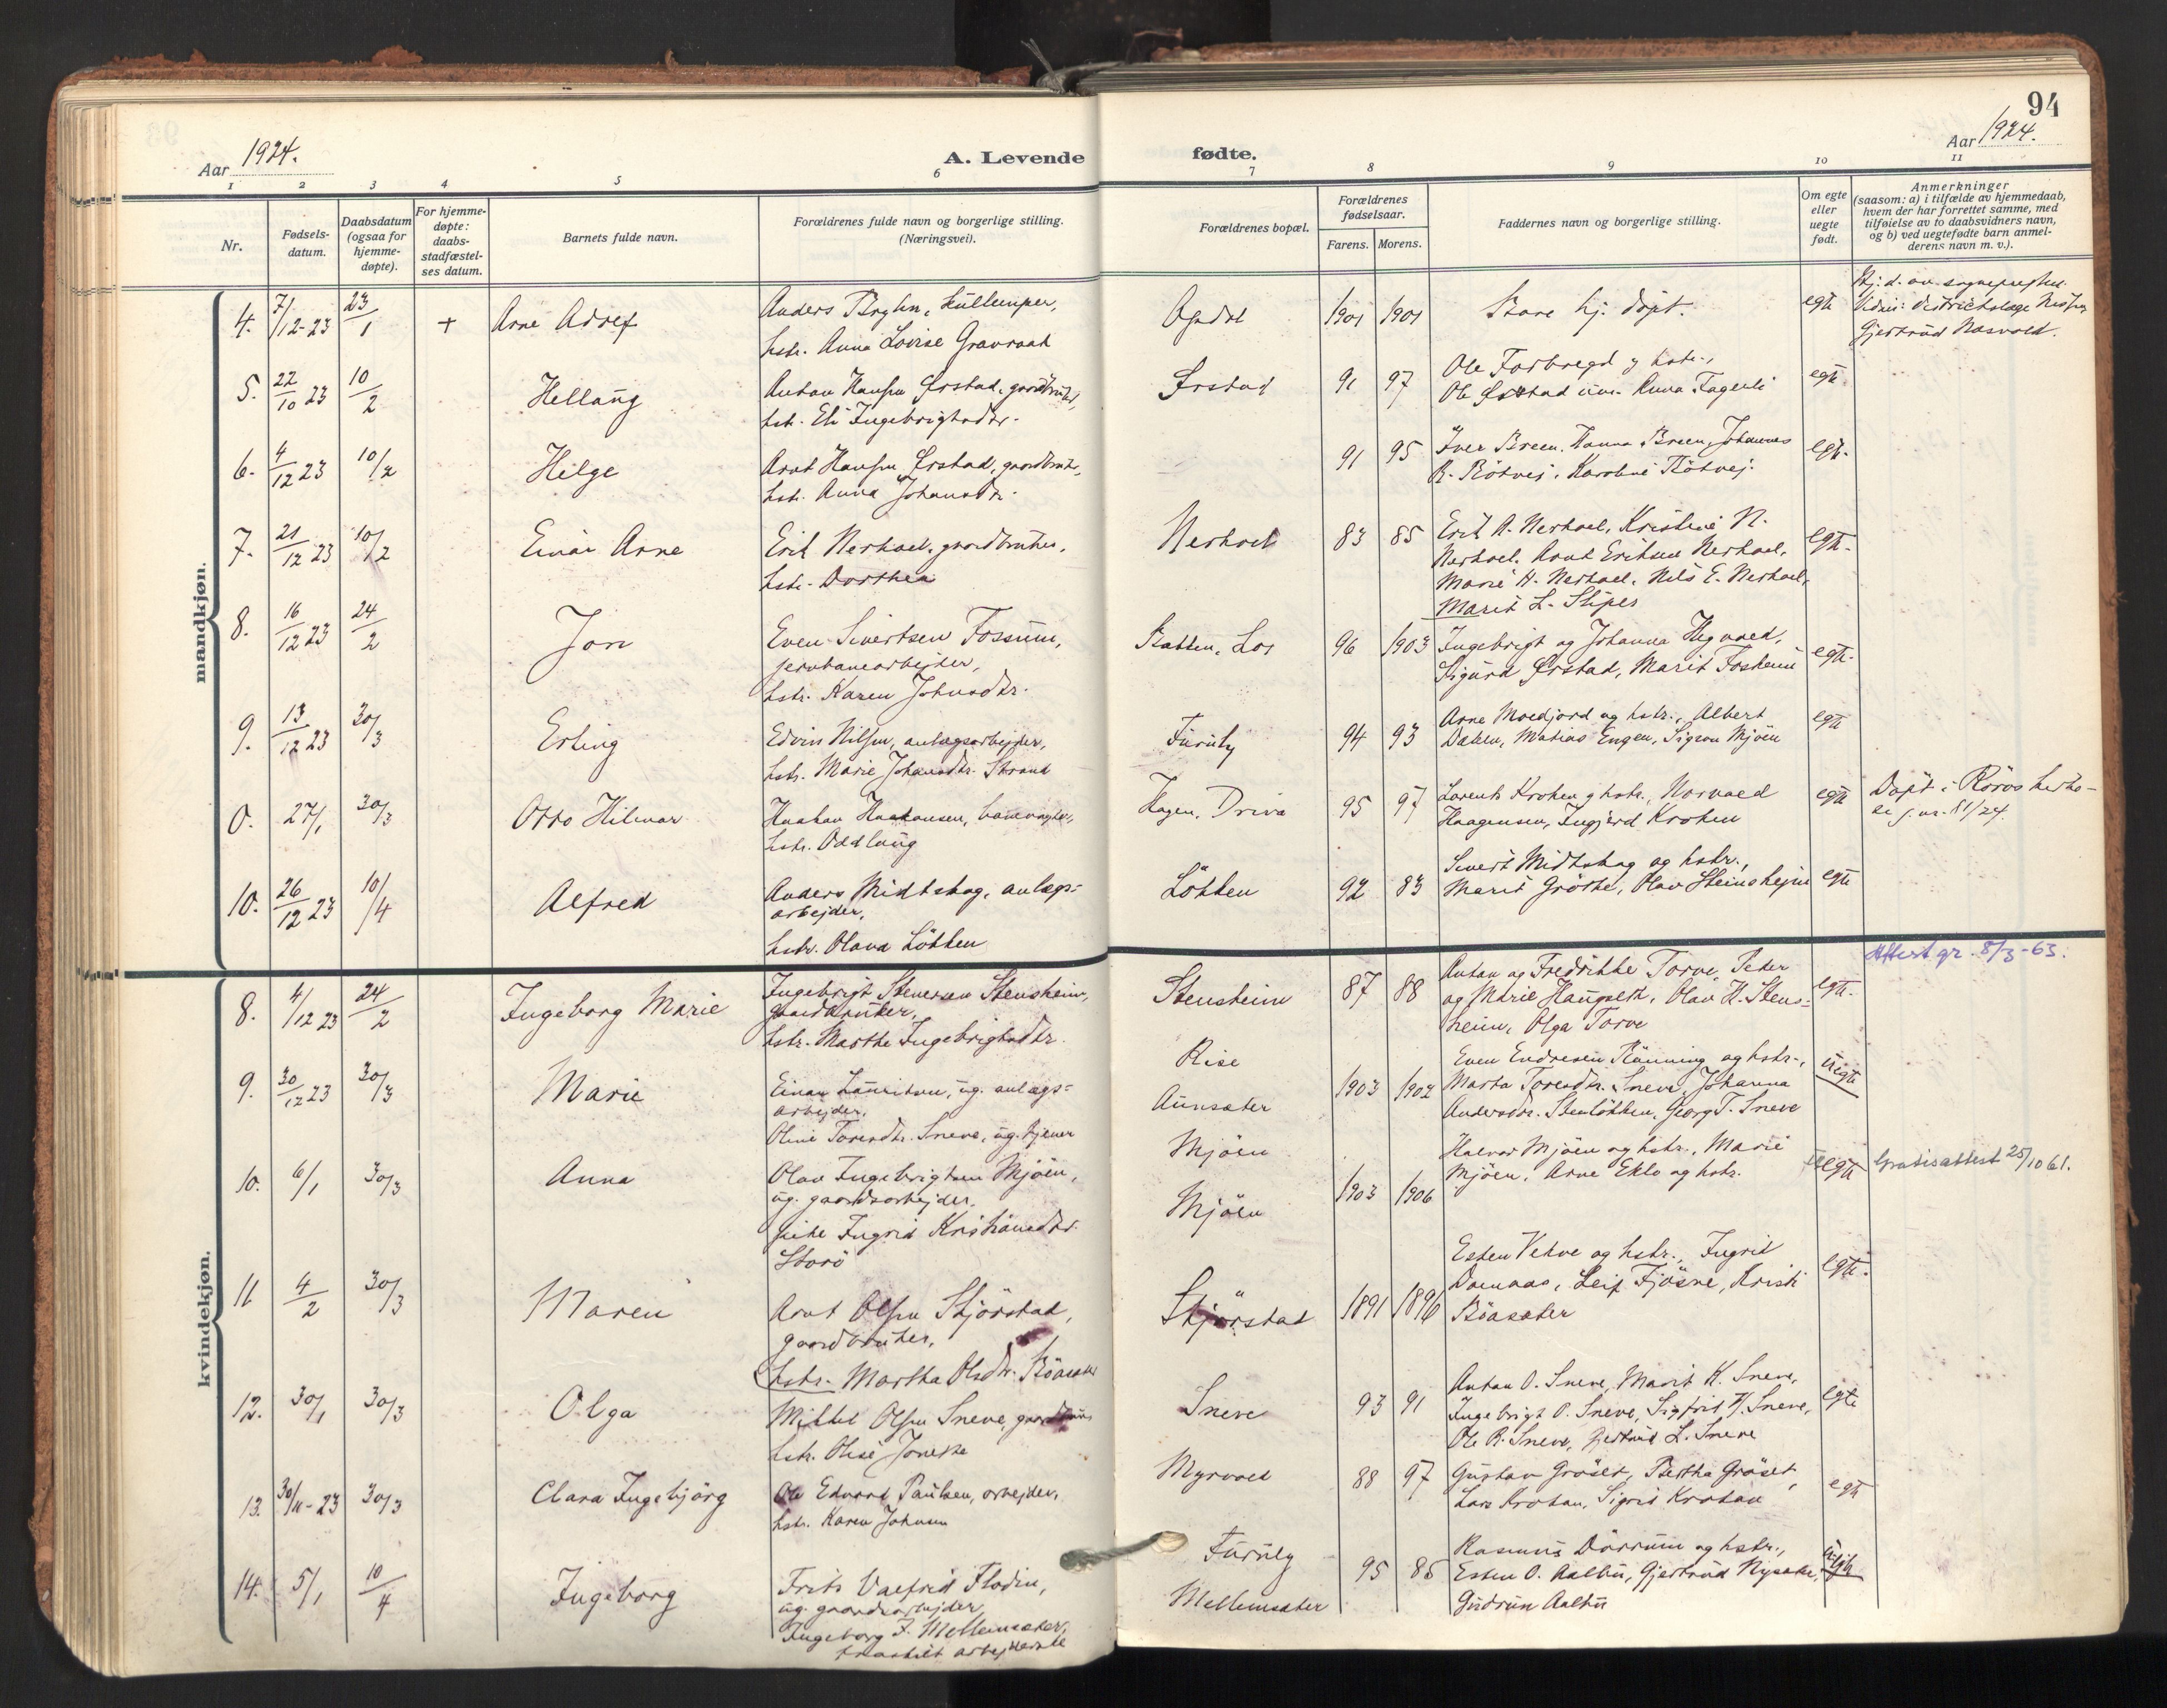 94
Aar 1924.
A. Levende
fødte.
Aar 1924.
1 2 3 4 5 6 7 8 9 10 11
Nr.
Fødsels-
datum.
Daabsdatum
(ogsaa for
hjemme-
døpte).
For hjemme-
døpte:
daabs-
stadfæstel-
ses datum.
Barnets fulde navn.
Forældrenes fulde navn og borgerlige stilling.
(Næringsvei).
Forældrenes bopæl.
Forældrenes
fødselsaar.
Farens. Morens.
Faddernes navn og borgerlige stilling.
Om egte
eller
uegte
født.
Anmerkninger
(saasom: a) i tilfælde av hjemmedaab,
hvem der har forrettet samme, med
tilføielse av to daabsvidners navn,
og b) ved uegtefødte barn anmel-
derens navn m. v.).
mandkjøn.
4. 7/12-23 23/1 + Arne
Anders
hstr. Anna Lovise
Opdal 1901 1901
Bare hj. døpt.
egte
Hj.d. av sognepresten.
Gjertrud
5. 22/10 23 10/2 Hellaug
Antan Hansen Ørstad, gaardbruker,
hstr. Eli Ingebrigtsdtr.
Ørstad 91 97
Ole Forbregd og hstr.,
Ole Ørstad Anna Fagerli
egte
6. 4/12 23 10/2 Helge
Arnt Hansen Ørstad, gaardbruker,
hstr. Anna Johansdtr.
91 95
Iver Breen, Hanna Breen, Johannes
egte.
7. 21/12 23 10/2 Einar Arne
Erik Nerhoel, gaardbruker,
hstr. Dorthea
Nerhoel 83 85
Erik A. Nerhoel, Kristine N.
Nerhoel, Arnt Eriksen Nerhoel,
Marie H. Nerhoel, Nils E. Nerhoel,
Marit L. Stipes
egte.
8. 16/12 23 24/2 Jon
Even Sivertsen Fossum,
jernbanearbejder,
hstr. Karen Johnsdtr.
96 1903
Ingebrigt og Johanna
Sigurd Ørstad, Marit Fosheim
egte.
9. 13/12 23 30/3 Erling
Edvin Nilsen, anlægsarbejder,
hstr. Marie Johansdtr. Strand
Furuly 94 93
Arne Moedjord og hstr., Albert
Dahlen, Matias Engen, Sigrun Mjöen
egte
0. 27/1 30/3 Otto Hilmar
Haakon Haakonsen, banevogter,
hstr. Oddlaug
Hagen, Driva 95 97
Laurents Krohen og hstr., Norvald
Haagensen, Ingjerd Krohen
egte
Döpt i Röros kirke
10. 26/12 23 10/4 Alfred
Anders Midtskog, anlægs-
arbejder,
hstr. Olava Lökken
Lökken 92 83
Sivert Midtskog og hstr.,
Marit Gröthe, Olav Steinshejm
egte
kvindekjøn.
Attest gr. 8/3-63.
8. 4/12 23 24/2 Ingeborg Marie
Ingebrigt Stenersen Stensheim,
gaardbruker,
hstr. Marthe Ingebrigtsdtr.
Stensheim 87 88
Antan og Fredrikke Torve, Peder
og Marie Haugseth, Olav H. Stens-
heim, Olga Torve
egte.
9. 30/12 23 30/3 Marie
Einar Lauritsen, ug. anlægs-
arbejder,
Oline Toresdtr. Sneve, ug. tjener
Rise
Aunsæter 1903 1902
Even Endresen Rönning og hstr.,
Marta Toresdtr. Sneve, Johanna
Andersdtr. Stenlökken, Georg T. Sneve
uegte
10. 6/1 30/3 Anna
Olav Ingebrigtsen Mjöen,
ug. gaardsarbejder,
pike Ingrid Kristiansdtr.
Storö
Mjöen
Mjöen 1903 1906
Halvor Mjöen og hstr., Marie
Mjöen, Arne Eklo og hstr.
uegte
Gratisattest 25/10 61.
11 4/2 30/3 Maren
Arnt Olsen Skjörstad,
gaardbruker,
hstr. Martha Olsdtr. Böasæter
Skjörstad 1891 1896
Esten Vekve og hstr., Ingrid
Domaas, Leif Fjösne, Kristi
Böasæter
egte.
12. 30/1 30/3 Olga
Mikkel Olsen Sneve, gaardbruker
hstr. Olise
Sneve 93 91
Antan O. Sneve, Marit K. Sneve,
Ingebrigt O. Sneve, Sigfrid H. Sneve,
Ole R. Sneve, Gjertrud L. Sneve
egte
13. 30/11-23 30/3 Clara Ingebjörg
Ole Edvard Paulsen, arbejder,
hstr. Karen Johnsen
Myrvold 88 97
Gustav Gröset, Bertha Gröset,
Lars Krohan, Sigrid Krohan
egte
14. 5/1 10/4 Ingeborg
Frits Valfrid Flodin,
ug. gaardsarbejder
Ingeborg J. Mellemsæter,
fraskilt arbejderske
Furuly
Mellemsæter 95 85
Rasmus Dörrum og hstr.,
Esten O. Aalbu, Gjertrud Nysæter,
Gudrun Aalbu
uegte